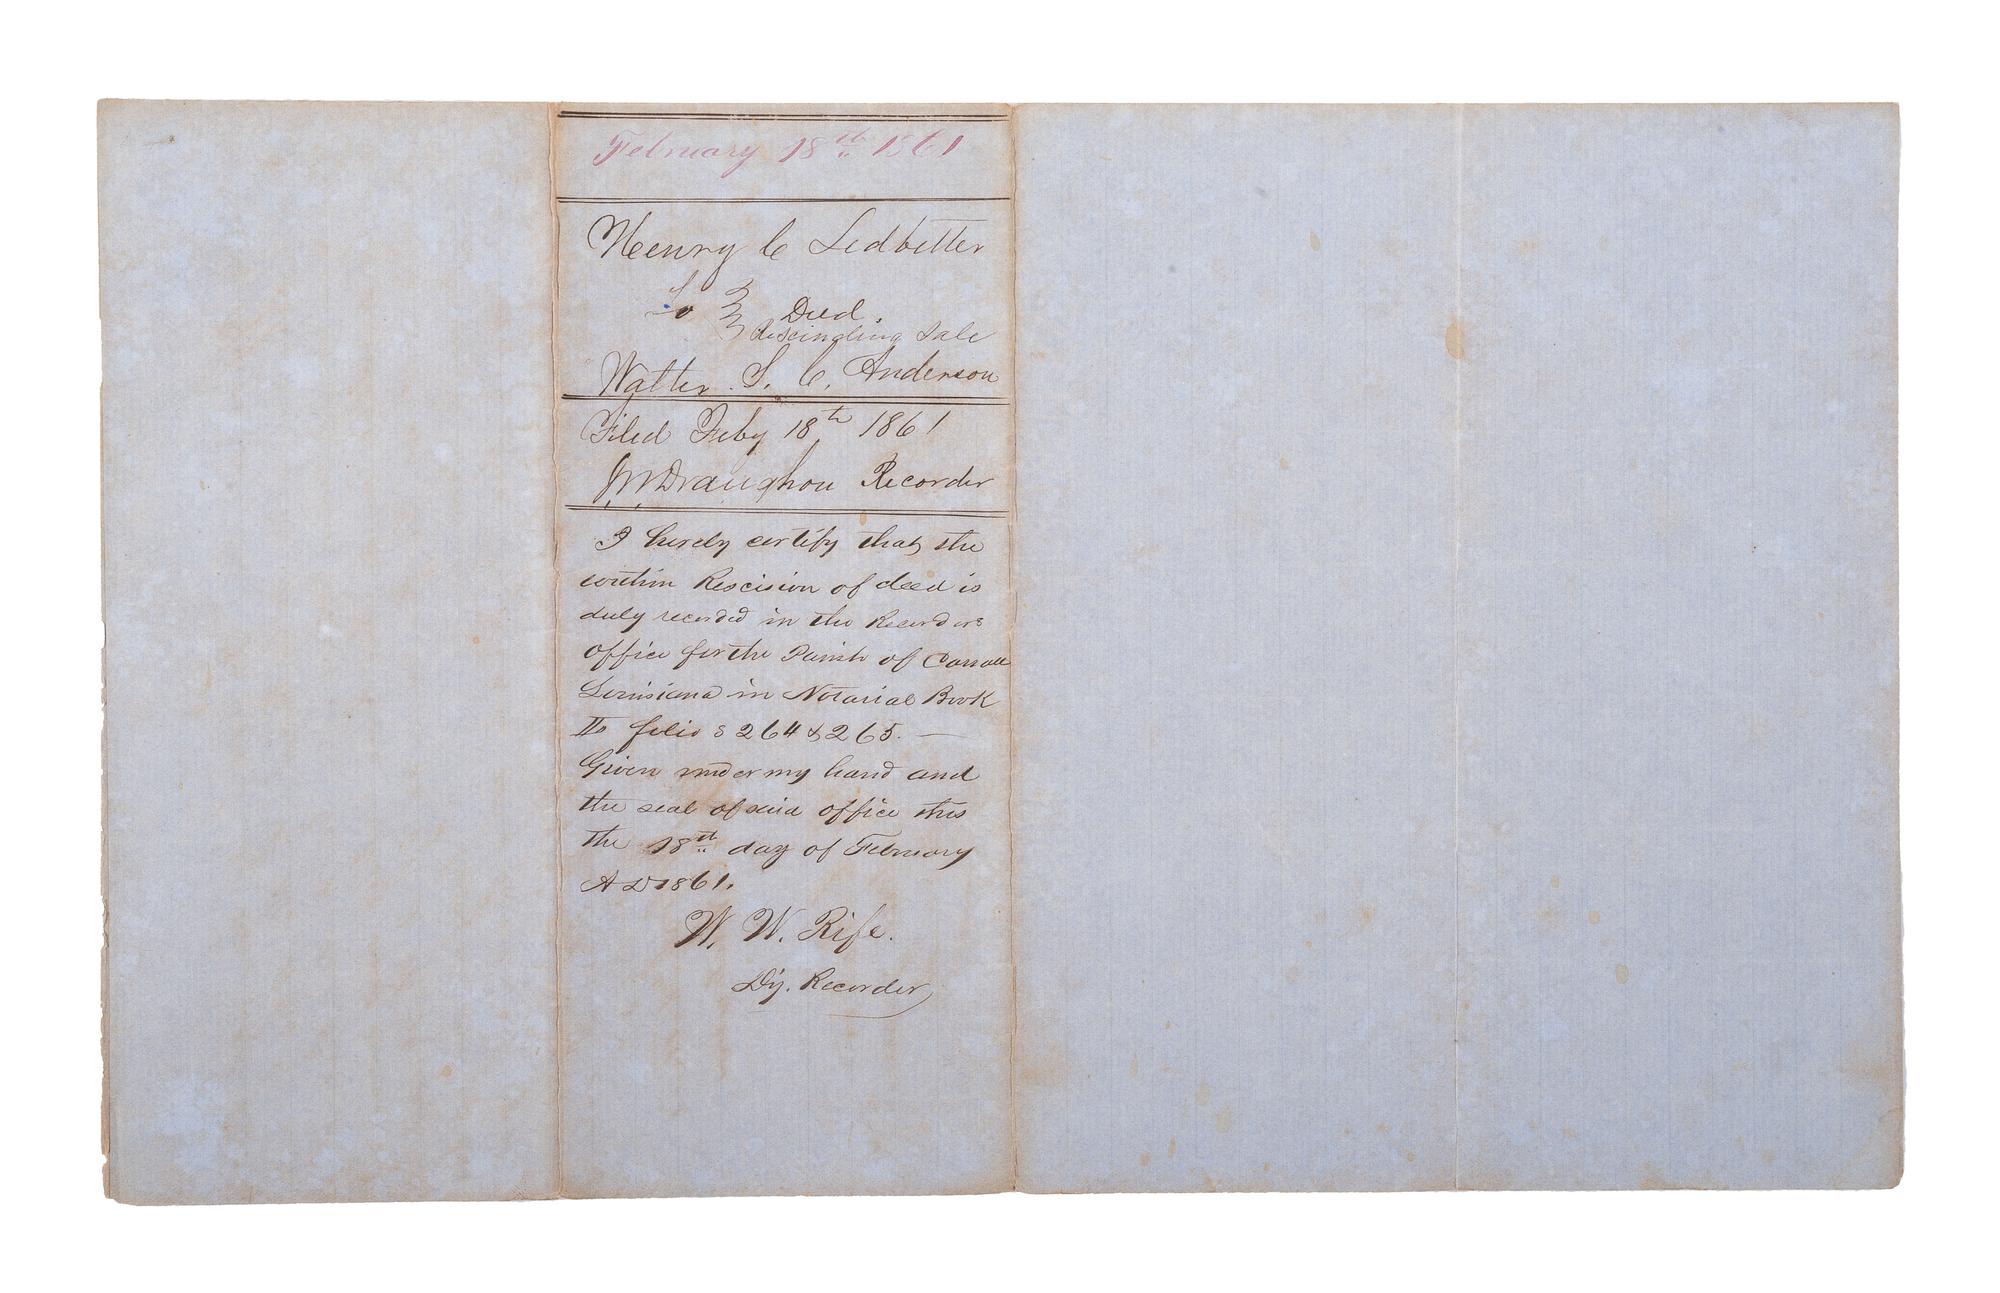 February 18th 1861
Henry C Ledbetter
To Deed.
Rescinding Sale
Walter S. C. Anderson
Filed Feby 18th 1861
JM Draughon Recorder
I hereby certify that the
within Rescision of deed is
duly recorded in the Recorders
office for the Parish of Carroll
Louisiana in Notarial Book
folios 264 & 265. —
Given under my hand and
the seal of said office this
the 18th day of February
A D 1861.
W. W. Rife.
Dy. Recorder